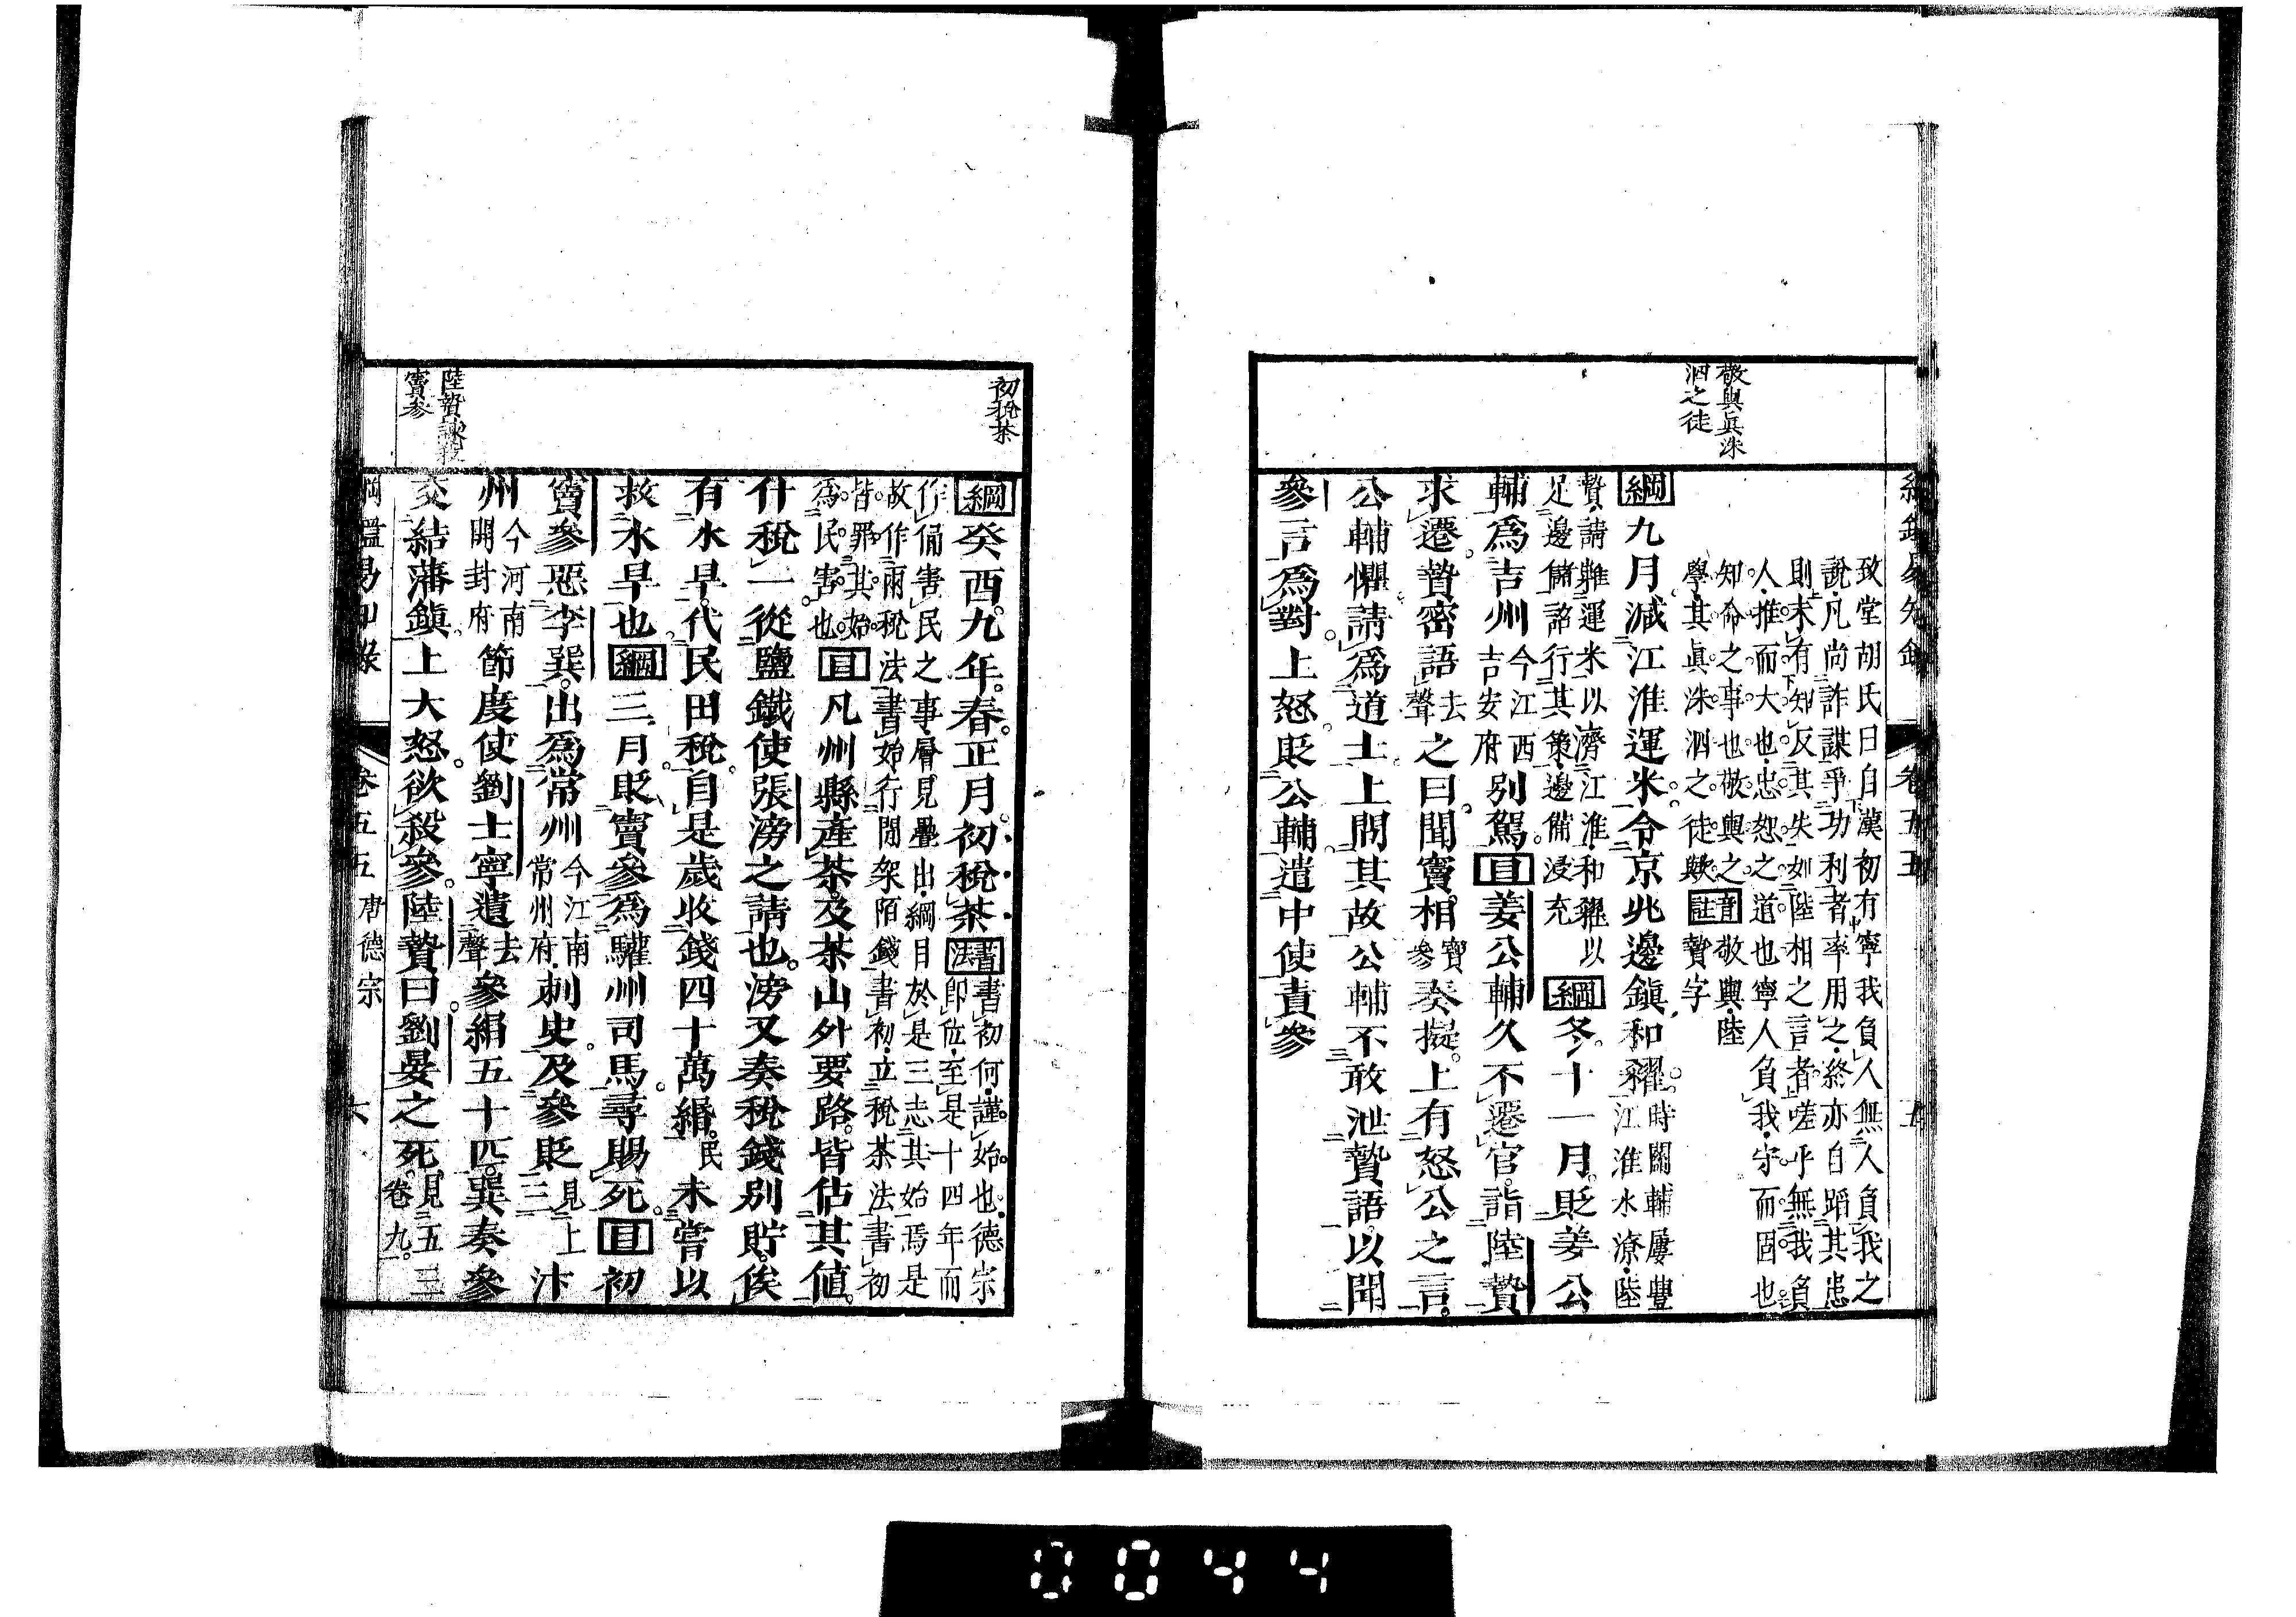 綱鑑易知錄 卷五五 五
敬輿眞洙
泗之徒
致堂胡氏曰自漢初有寧我負人無人負我之
說凡尚詐謀爭功利者率用之終亦自蹈其患
則末有知反其失如陸相之言者嗟乎無我負
人推而大也忠恕之道也寧人負我守而固也
知命之事也敬輿之
學其眞洙泗之徒歟
音註敬輿陸
贄字
綱九月減江淮運米令京兆邊鎭和糴
時關輔屢豐
江淮水潦陸
贄請雖運米以濟江淮和糴以
足邊儲詔行其策邊備浸充
綱冬十一月貶姜公
輔爲吉州今江西吉安府別駕目姜公輔久不遷官詣陸贄
求遷贄密語去聲之曰聞竇相竇參奏擬上有怒公之言
公輔懼請爲道士上問其故公輔不敢泄贄語以聞
參言爲對上怒貶公輔遣中使責參
初稅茶
綱癸酉九年春正月初稅茶
書法書初何謹始也德宗
卽位至是十四年而
作俑害民之事層見疊出綱目於是三志其始焉是
故作兩稅法書始行間架陌錢書初立稅茶法書初
皆罪其始
爲民害也
目凡州縣產茶及茶山外要路皆估其値
什稅一從鹽鐵使張滂之請也滂又奏稅錢別貯俟
有水旱代民田稅自是歲收錢四十萬緡民未嘗以
救水旱也綱三月貶竇參爲驩州司馬尋賜死目初
竇參惡李巽出爲常州今江南常州府刺史及參貶見上三汴
州今河南開封府節度使劉士寧遺去聲參絹五十匹巽奏參
交結藩鎭上大怒欲殺參陸贄曰劉晏之死見五三卷九
陸贄諫殺
竇參
綱鑑易知錄 卷五五 唐德宗 六
0044